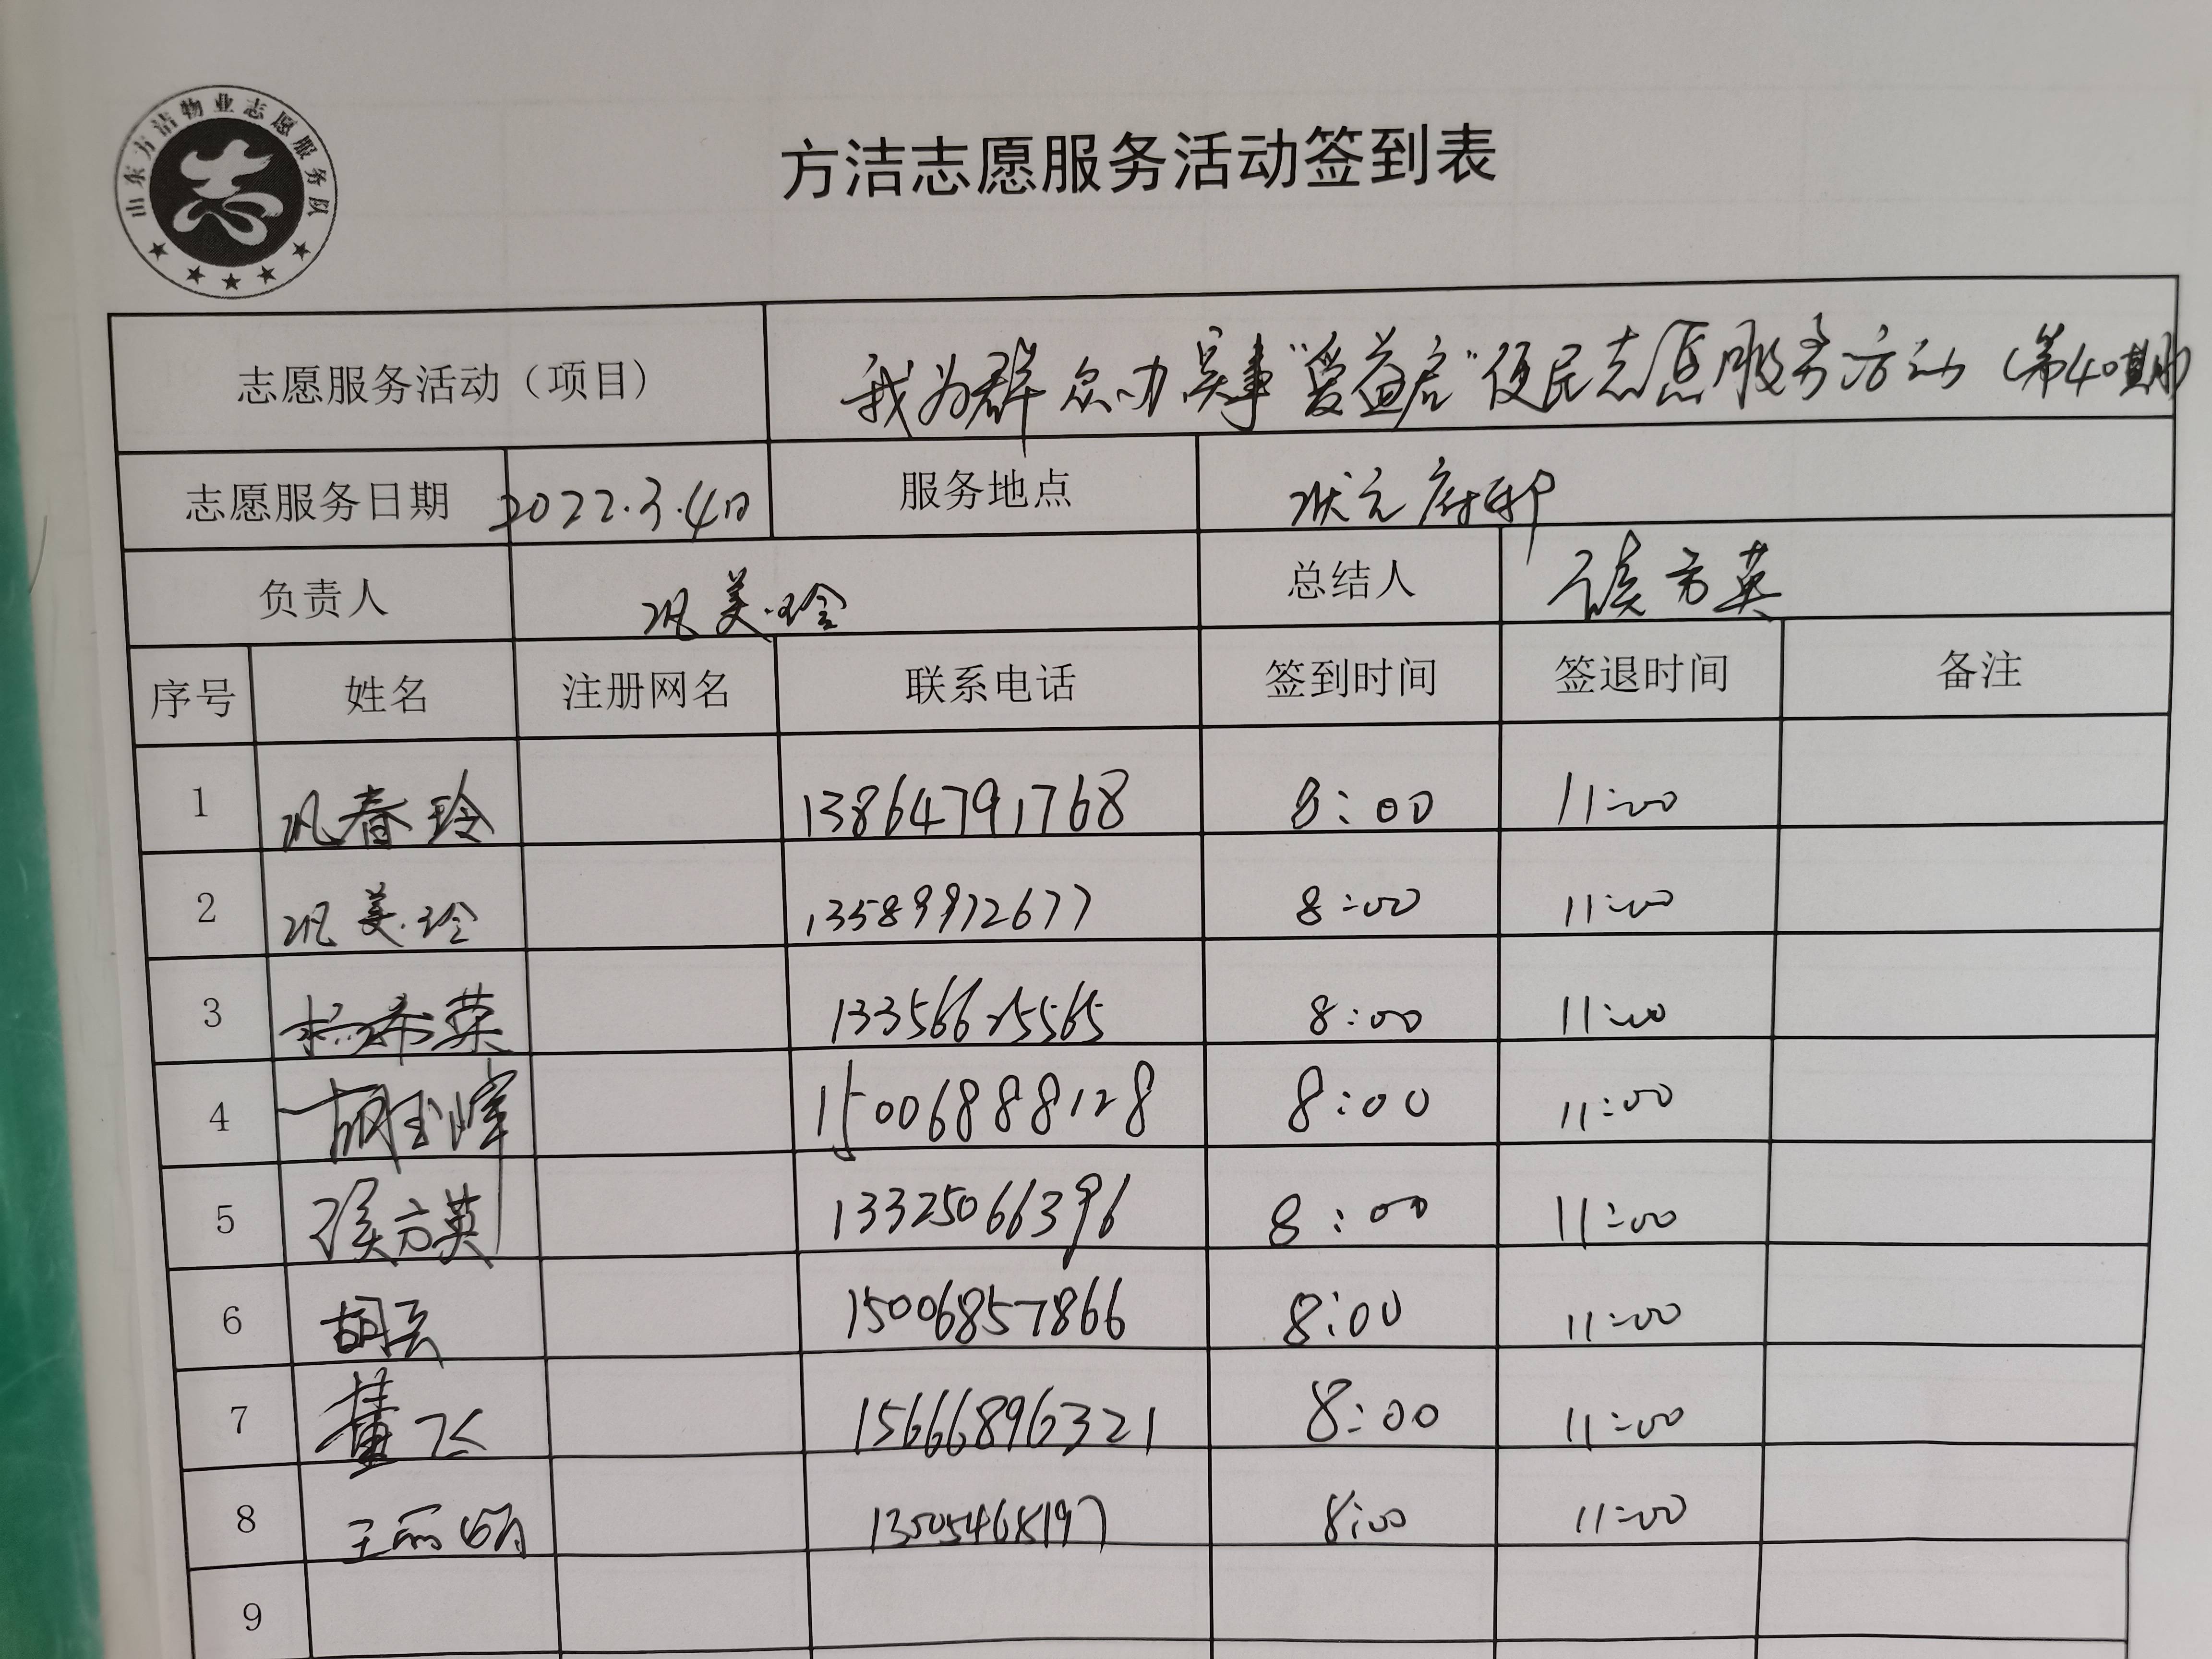 山东方洁物业志愿服务队
方洁志愿服务活动签到表
志愿服务活动（项目） 我为群众办实事“爱益启”便民志愿服务活动（第40期）
志愿服务日期 2022.3.4日 服务地点 状元府邸
负责人 巩美玲 总结人 侯方英
序号 姓名 注册网名 联系电话 签到时间 签退时间 备注
1 巩春玲 13864791768 8:00 11:00
2 巩美玲 13589972677 8:00 11:00
3 杨希荣 8:00 11:00
4 胡玉峰 15006888128 8:00 11:00
5 侯方英 13325066396 8:00 11:00
6 胡云 15006857866 8:00 11:00
7 董飞 15666896321 8:00 11:00
8 王丽娟 13505468197 8:00 11:00
9